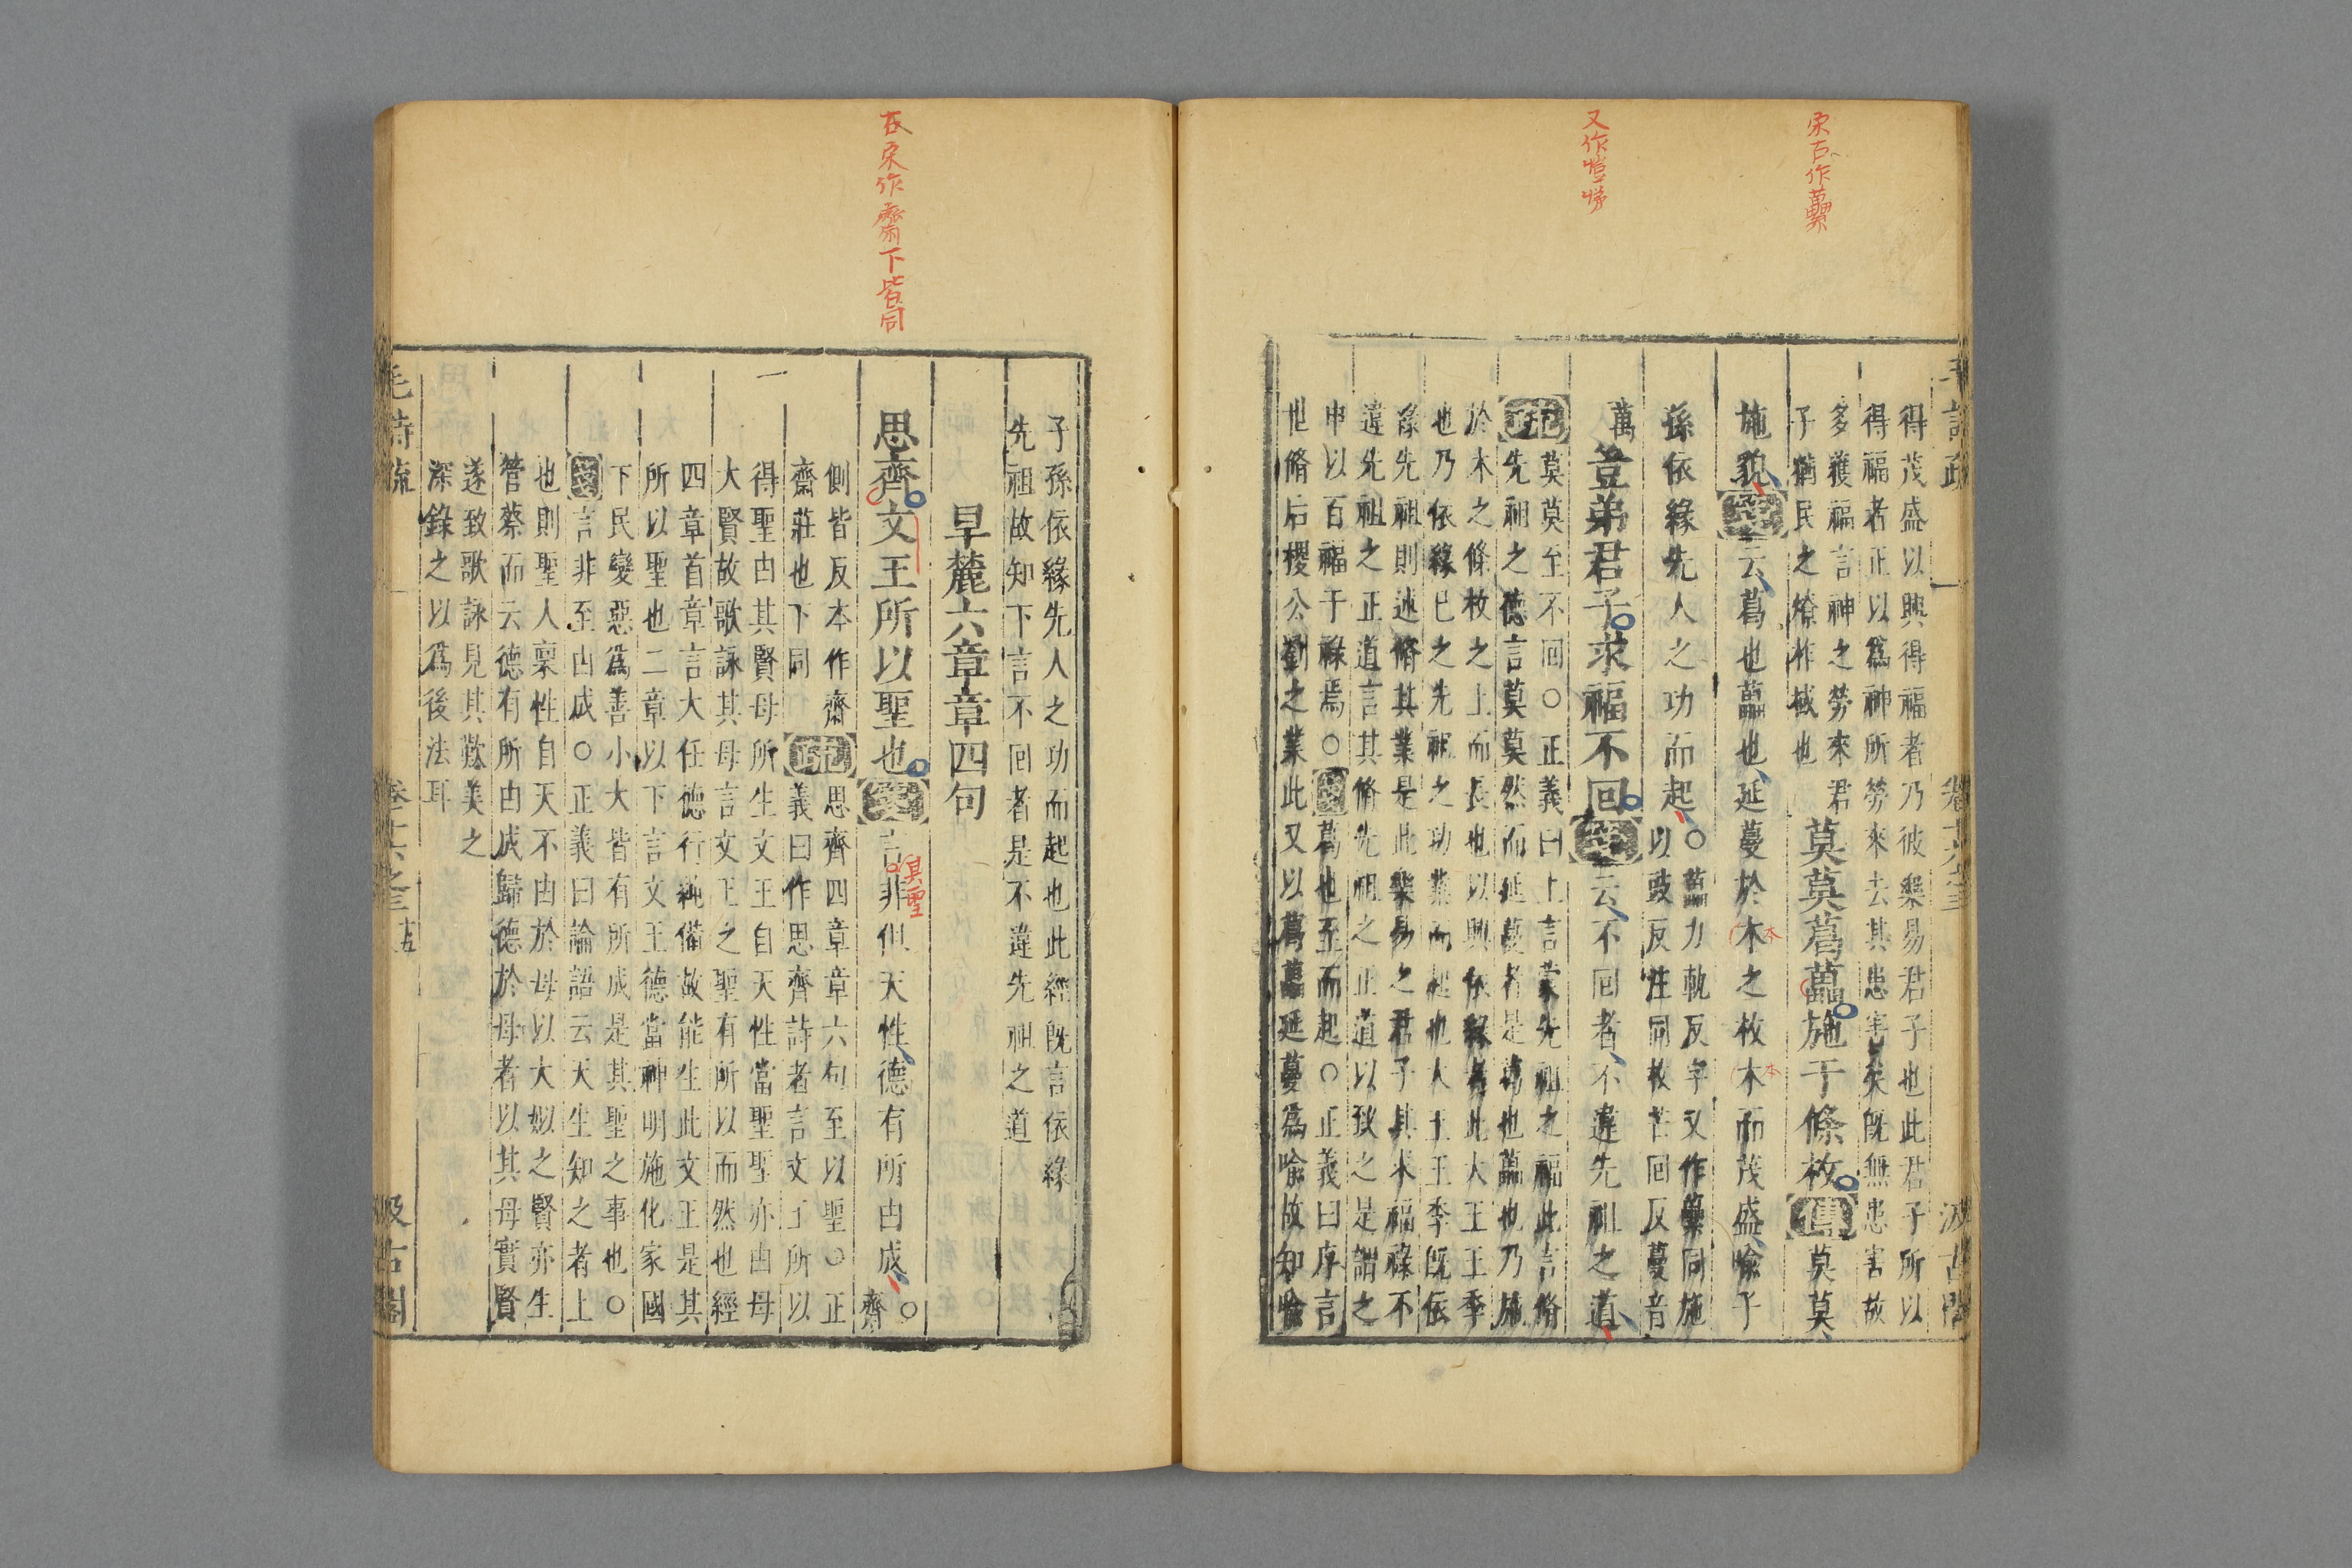 宋古作藟
又作愷悌
得茂盛以興得福者乃彼樂易君子也此君子所以
得福者正以爲神所勞來去其患害矣旣無患害故
多獲福言神之勞來君
子猶民之燎柞棫也
莫莫葛藟施于條枚傳莫莫
施貌箋云葛也藟也延蔓於木之枚木而茂盛喻子
本
本
孫依緣先人之功而起
○藟力軌反字又作虆同施
以豉反注同枚芒回反蔓音
萬
豈弟君子求福不回箋云不回者不違先祖之道
疏莫莫至不回○正義曰上言蒙先祖之福此言脩
先祖之德言莫莫然而延蔓者是葛也藟也乃施
於木之條枚之上而長也以興依緣者此大王王季
也乃依緣己之先祖之功業而起也大王王季旣依
緣先祖則述脩其業是此樂易之君子其求福祿不
違先祖之正道言其脩先祖之正道以致之是謂之
申以百福干祿焉○箋葛也至而起○正義曰序言
世脩后稷公劉之業此又以葛藟延蔓爲喻故知喻
子孫依緣先人之功而起也此經旣言依緣
先祖故知下言不回者是不違先祖之道
旱麓六章章四句
在宋作齋下皆同
思齊文王所以聖也箋言非但天性德有所由成○齊
側皆反本作齋
齋莊也下同
疏思齊四章章六句至以聖○正
義曰作思齊詩者言文王所以
得聖由其賢母所生文王自天性當聖聖亦由母
大賢故歌詠其母言文王之聖有所以而然也經
四章首章言大任德行純備故能生此文王是其
所以聖也二章以下言文王德當神明施化家國
下民變惡爲善小大皆有所成是其聖之事也○
箋言非至由成○正義曰論語云天生知之者上
也則聖人稟性自天不由於母以大姒之賢亦生
管蔡而云德有所由成歸德於母者以其母實賢
遂致歌詠見其歎美之
深錄之以爲後法耳
毛詩疏
卷十六之三
十五
汲古閣